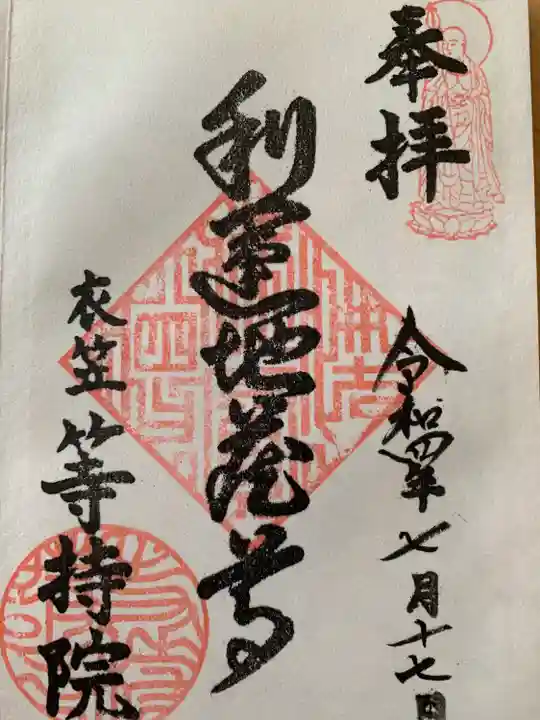 奉拝
令和四年七月十七日
利運地蔵尊
衣笠等持院